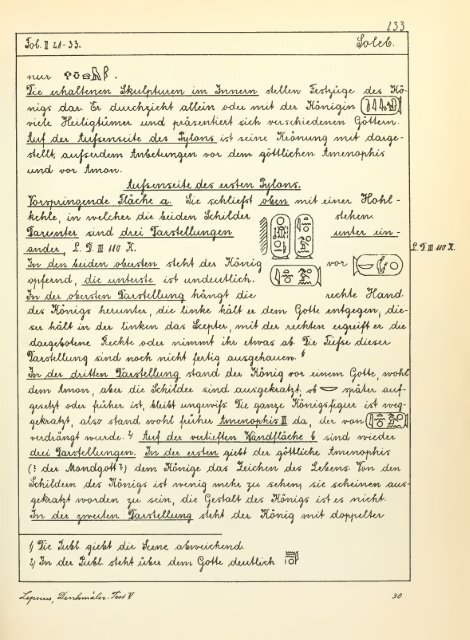 233
Tb. II 21-33. Soleb.
nur
Die erhaltenen Skulpturen im Innern stellen Festzüge des Kö-
nigs dar. Er durchzieht allein oder mit der Königin
viele Heiligtümer und präsentirt sich verschiedenen Göttern.
Auf der Aufsenseite des Pylons ist seine Krönung mit darge-
stellt, aufserdem Anbetungen vor dem göttlichen Amenophis
und vor Amon.
Aufsenseite des ersten Pylons.
Vorspringende Fläche a. Sie schliefst oben mit einer Hohl-
kehle, in welcher die beiden Schilder stehen.
Darunter sind drei Darstellungen unter ein-
ander, L. D. III 110 K. L. D. III 110 K.
In den beiden obersten steht der König vor
opfernd, die unterste ist undeutlich.
In der obersten Darstellung hängt die rechte Hand
des Königs herunter, die linke hält er dem Gotte entgegen, die-
ser hält in der linken das Scepter, mit der rechten ergreift er die
dargebotene Rechte oder nimmt ihr etwas ab. Die Tiefse dieser
Darstellung sind noch nicht fertig ausgehauen. 1
In der dritten Darstellung stand der König vor einem Gotte, wohl
dem Amon, aber die Schilder sind ausgekratzt, ob später auf-
gesetzt oder früher ist, bleibt ungewifs. Die ganze Königsfigur ist weg-
gekratzt, also stand wohl früher Amenophis III da, der von
verdrängt wurde. 2) Auf der vertieften Wandfläche b sind wieder
drei Darstellungen. In der ersten giebt der göttliche Amenophis
(? der Mondgott?) dem Könige das Zeichen des Lebens. Von den
Schildern des Königs ist wenig mehr zu sehen, sie scheinen aus-
gekratzt worden zu sein, die Gestalt des Königs ist es nicht.
In der zweiten Darstellung steht der König mit doppelter
1) Die Publ. giebt die Scene abweichend.
2) In der Publ. steht über dem Gotte deutlich
Lepsius, Denkmäler. Text V 30